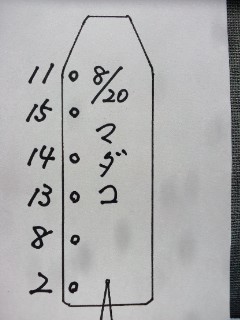 11
15
14
13
8
2
8/20
マダコ